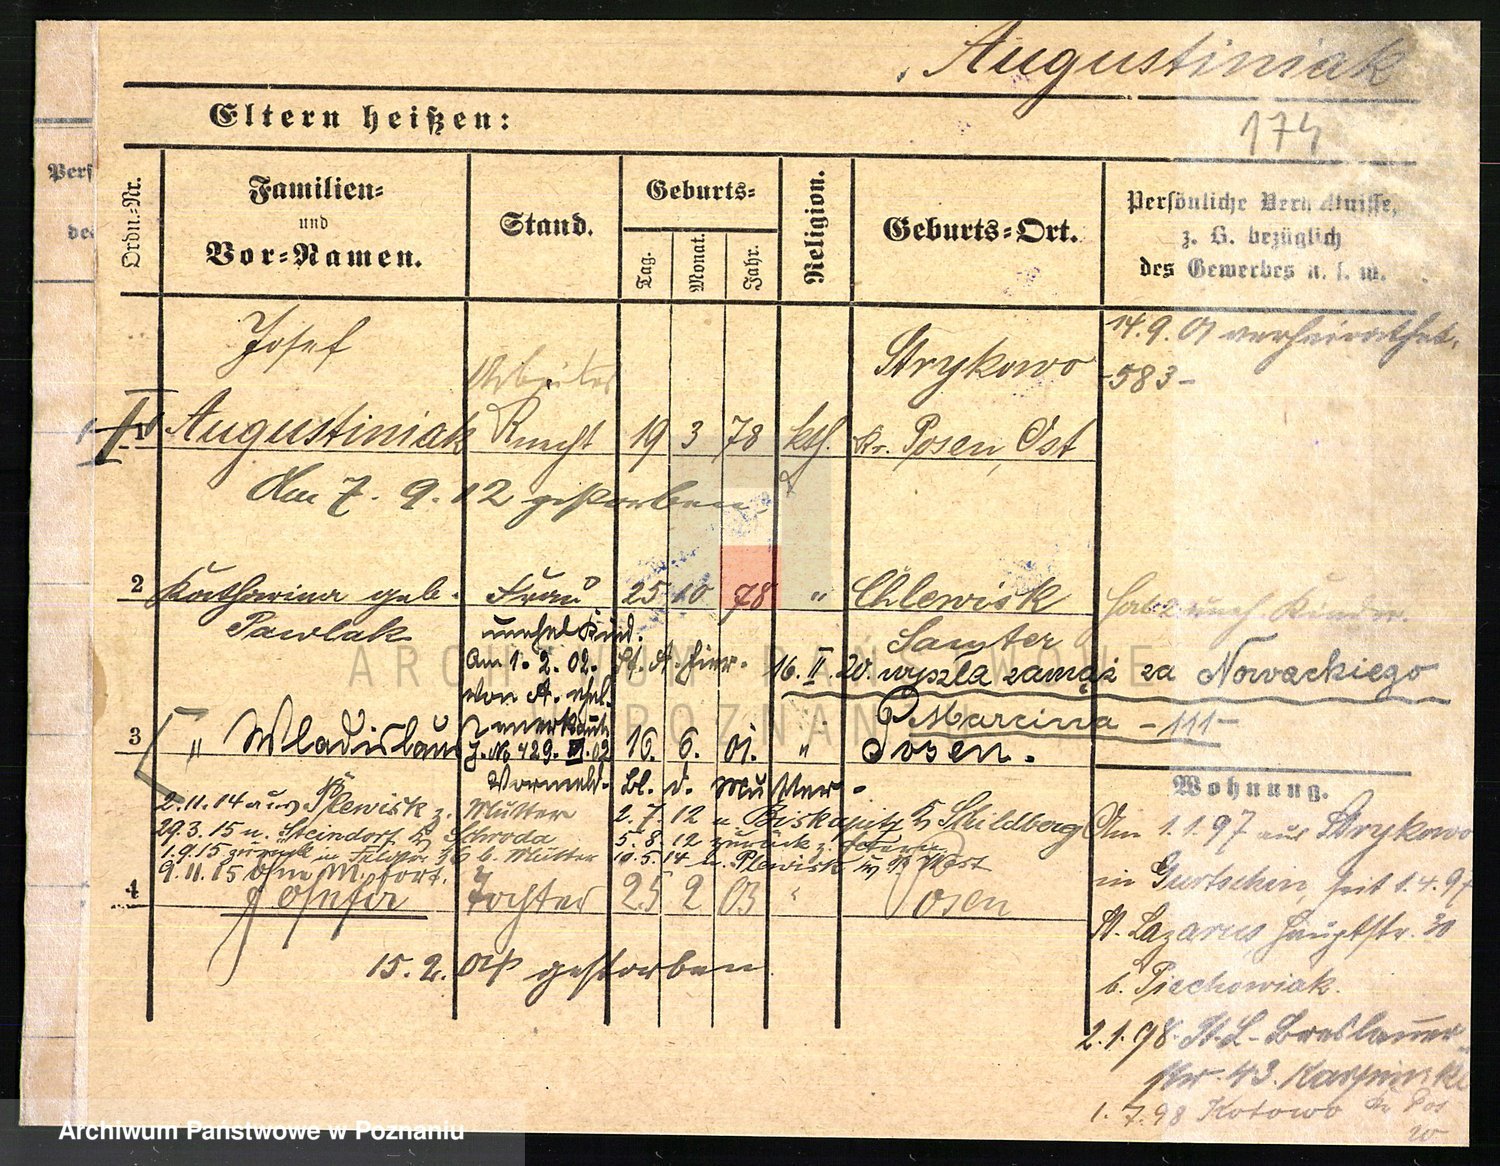 Augustiniak
Eltern heißen:
174
Pers
de
Ordn.-Nr.
Familien-
und
Vor-Namen.
Stand.
Geburts-
Tag.
Monat.
Jahr.
Religion.
Geburts-Ort.
Persönliche Verhältnisse,
z. B. bezüglich
des Gewerbes u. s. w.
Josef
Arbeiter
Strykowo
14.9.01 verheirathet.
-583-
1 Augustiniak Knecht 19 3 78 kth. Kr. Posen, Ost
Am 7. 9. 12 gestorben.
2 Katharina geb. Frau 25 10 78 " Chlewisk
Pawlak
unehel Kind.
Samter
am 1. 2. 02. St. A. hier.
16. II. 20. wyszła zamąż za Nowackiego
von A. ehel.
anerkannt
Marcina -111-
3 " Wladislaus J. No 429. III. 02 16. 6. 01. " Posen.
Vormd. bl. d. Mutter.
Wohnung.
2.11.14 aus Plewisk z. Mutter 2.7.12 n Biskupitz Kr Schildberg
29.3.15 n. Steindorf Kr Schroda 5.8.12 zurück z.
1.9.15 zurück b. Mutter 10.5.14 n. Plewisk Kr P. West
9.11.15
4 Josefa Tochter 25 2 03 " Posen
15. 2. gestorben
Am 1.1.97 aus Strykowo
in Gurtschin, seit 1.4.97
St. Lazarus Hauptstr. 30
b. Piechowiak.
2.1.98. St. L. Breslauer
str. 43.
1.7.98 Kotowo Kr Pos
W
ARCHIWUM PAŃSTWOWE
W POZNANIU
Archiwum Państwowe w Poznaniu